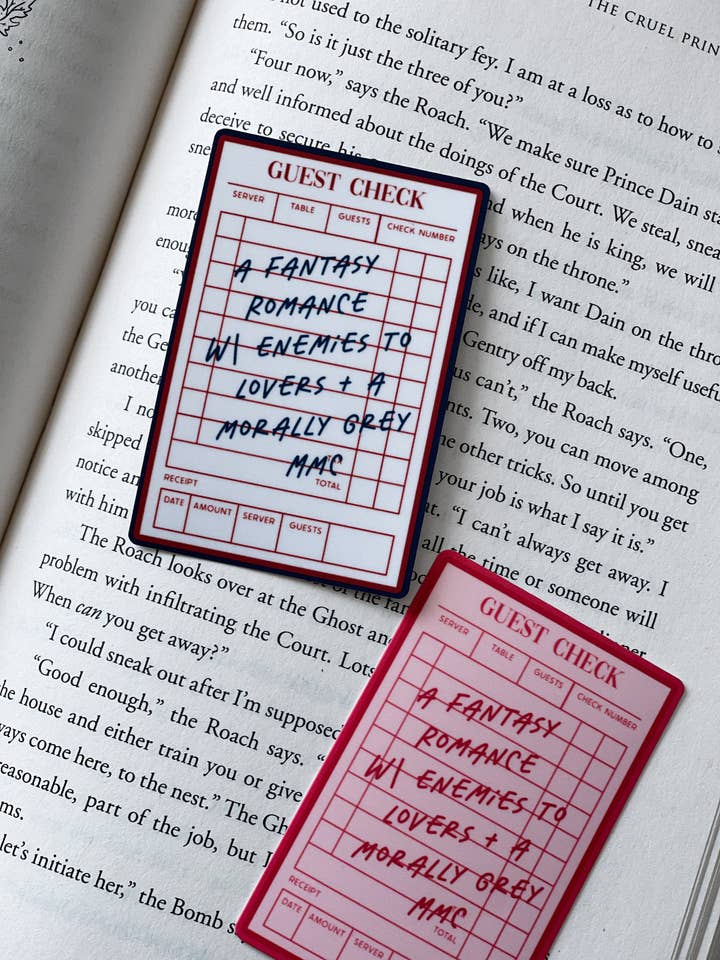 THE CRUEL PRIN
not used to the solitary fey. I am at a loss as to how to
them. “So is it just the three of you?”
“Four now,” says the Roach. “We make sure Prince Dain sta
and well informed about the doings of the Court. We steal, snea
deceive to secure his
sne
nd when he is king, we will
more
ays on the throne.”
enou
s like, I want Dain on the thro
you ca
de, and if I can make myself usefu
the Ge
Gentry off my back.
another
us can’t,” the Roach says. “One,
I no
nts. Two, you can move among
skipped
ne other tricks. So until you get
notice an
your job is what I say it is.”
with him
at. “I can’t always get away. I
all the time or someone will
The Roach looks over at the Ghost an
problem with infiltrating the Court. Lots
When can you get away?”
“I could sneak out after I’m supposed
“Good enough,” the Roach says. “
he house and either train you or give
ways come here, to the nest.” The Gh
reasonable, part of the job, but I
ms.
let’s initiate her,” the Bomb s
GUEST CHECK
SERVER TABLE GUESTS CHECK NUMBER
A FANTASY
ROMANCE
W/ ENEMIES TO
LOVERS + A
MORALLY GREY
MMC
RECEIPT TOTAL
DATE AMOUNT SERVER GUESTS
GUEST CHECK
SERVER TABLE GUESTS CHECK NUMBER
A FANTASY
ROMANCE
W/ ENEMIES TO
LOVERS + A
MORALLY GREY
MMC
RECEIPT TOTAL
DATE AMOUNT SERVER